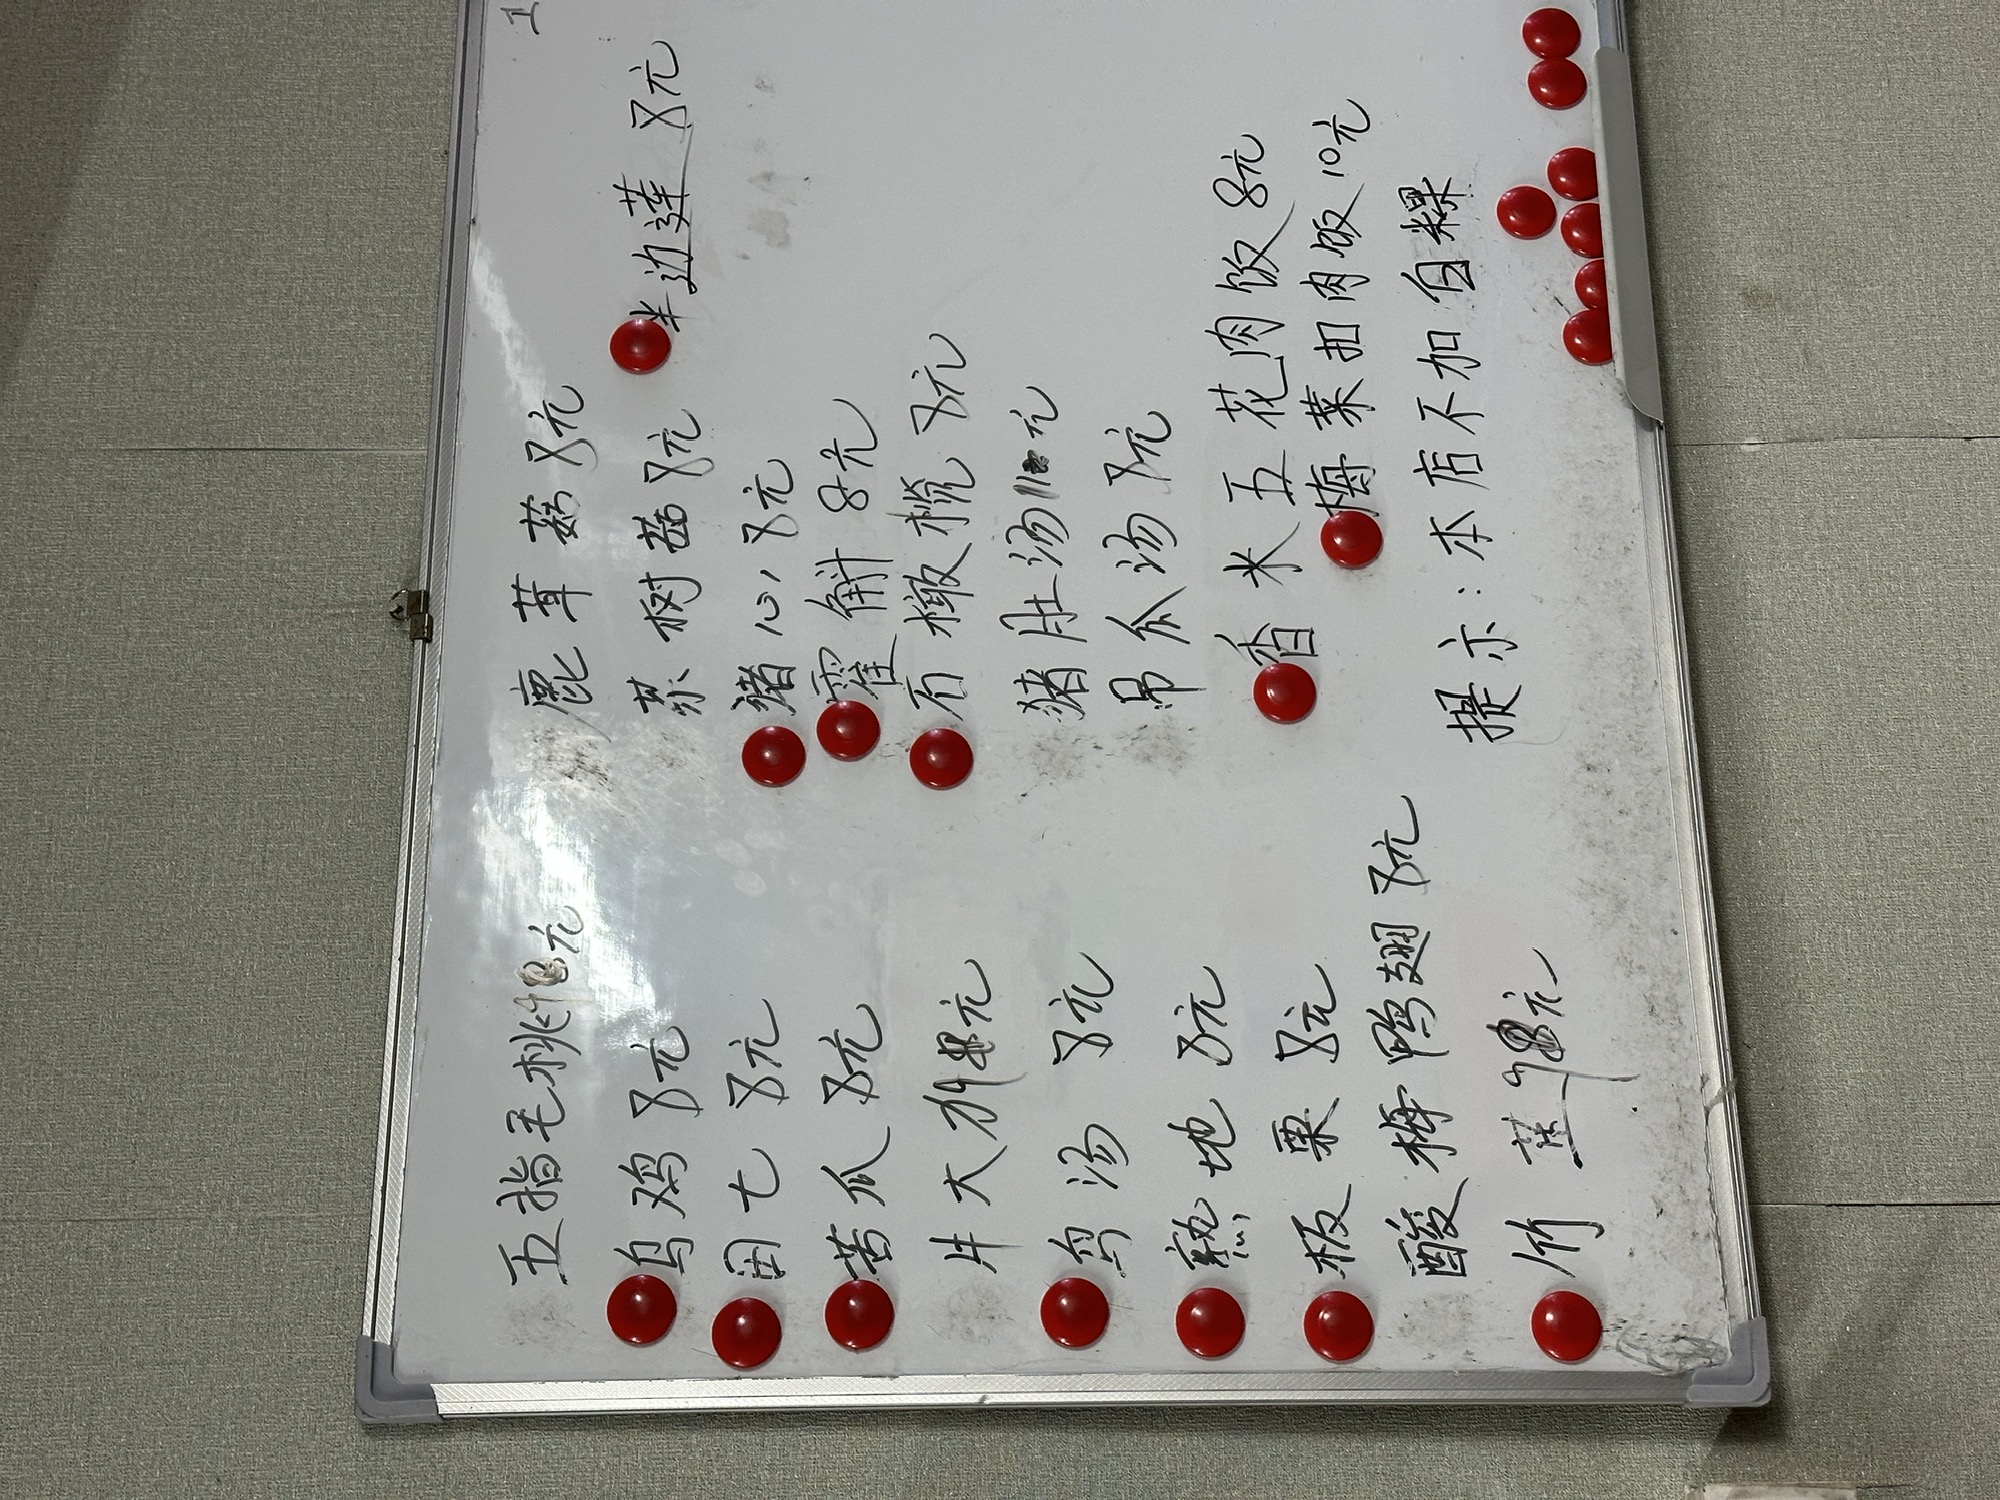 五指毛桃 元
乌鸡 8元
田七 8元
苦瓜 8元
牛大力 元
鸟汤 8元
熟地 8元
板栗 8元
酸梅鸭翅 8元
竹 元
鹿茸菇 8元
茶树菇 8元 半边莲 8元
猪心 8元
霍斛 8元
石橄榄 8元
猪肚汤 元
吊瓜汤 8元
香米五花肉饭 8元
梅菜扣肉饭 10元
提示:本店不加白粿